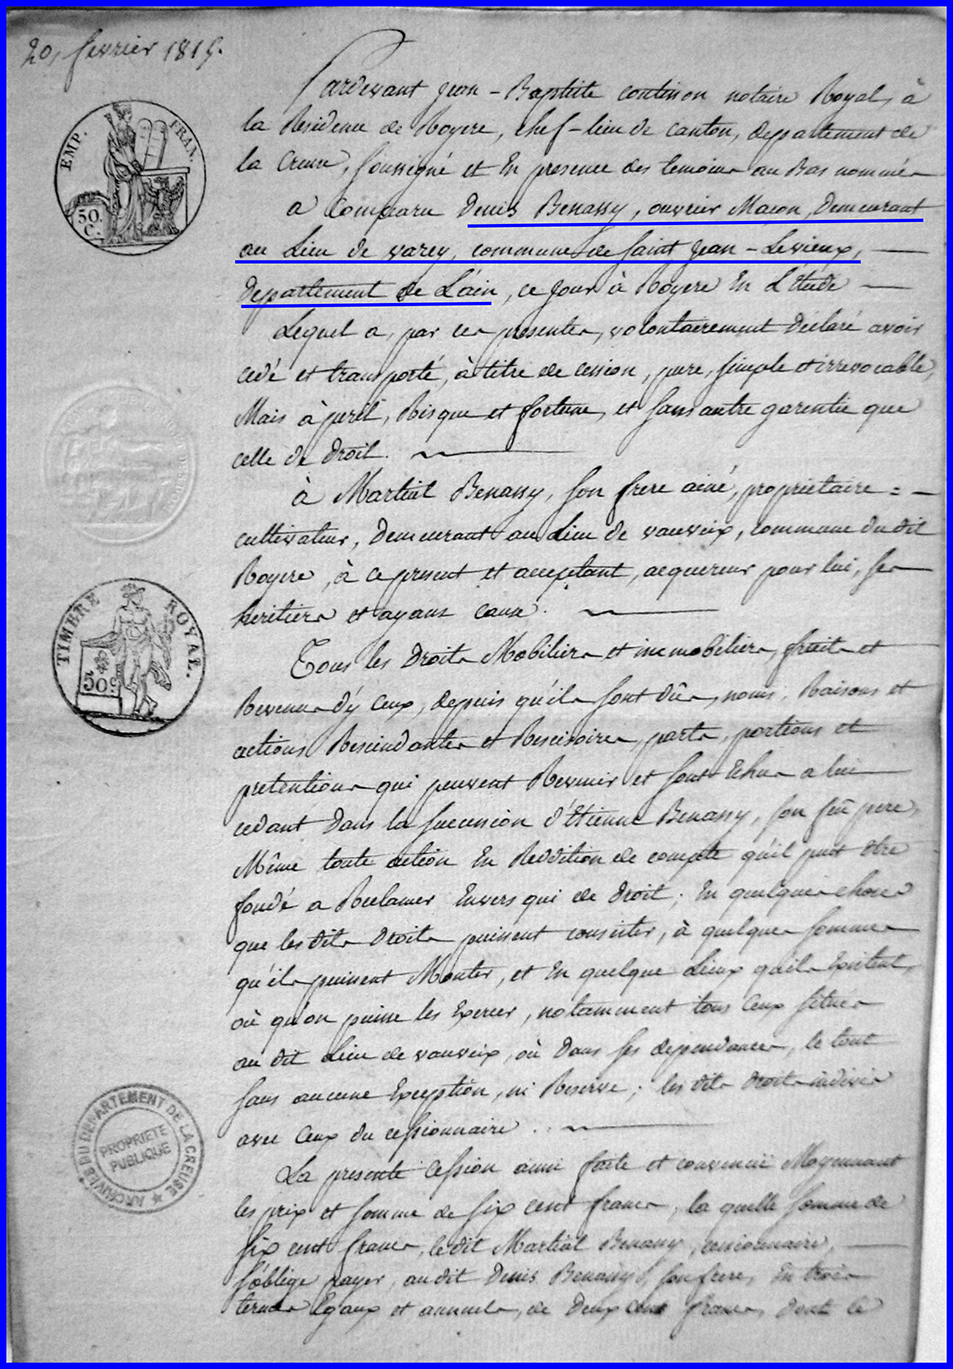 20, fevrier 1815.
Pardevant Jean-Baptiste coutisson notaire Royal, à
la Residence de Royere, chef-lieu de canton, departement de
la Creuse, soussigné et En presence des temoins au Bas nommés
a Comparu Denis Benassy, ouvrier Macon, Demeurant
au Lieu de varey, commune de Saint Jean-Levieux,
departement de L'ain, ce jour à Royere En L'étude
Lequel a, par ces presentes, volontairement déclaré avoir
cedé et transporté, à titre de cession, pure, simple et irrevocable,
Mais à peril, Risque et fortune, et sans autre garentie que
celle de Droit.
à Martial Benassy, son frere ainé, proprietaire =
cultivateur, Demeurant au Lieu de vauveix, commune du dit
Royere, à ce present et acceptant, acquereur pour lui, ses
heritiers et ayans cause.
Tous les Droits Mobiliers et immobiliers, fruits et
Revenus d'y Ceux, depuis qu'ils sont dûs, noms, Raisons et
actions Rescindantes et Rescisoires, parts, portions et
pretentions qui peuvent Revenir et sont Echus a lui
cedant Dans la succession d'Etienne Benassy, son feû pere,
Même toute action En Reddition de compte qu'il put être
fondé a Reclamer Envers qui de Droit; En quelques choses
que les dits Droits puissent consister, à quelques sommes
qu'ils puissent Monter, et En quelque Lieux qu'ils Existent,
où qu'on puisse les Exercer, notamment tous Ceux situés
au dit Lieu de vauveix, où Dans ses dependances, le tout
sans aucune Exception, ni Reserve; les dits droits indivis
avec Ceux du cessionnaire.
La presente Cession ainsi faite et convenue Moyennant
les prix et somme de six cent francs, la quelle somme de
six cent francs, le dit Martial Benassy, cessionnaire,
s'oblige payer, au dit Denis Benassy, son frere, En trois
termes Egaux et annuels, de Deux cent francs, dont le
EMP. FRAN.
50.
C.
TIMBRE ROYAL.
50c
ARCHIVES DU DEPARTEMENT DE LA CREUSE
PROPRIETE
PUBLIQUE